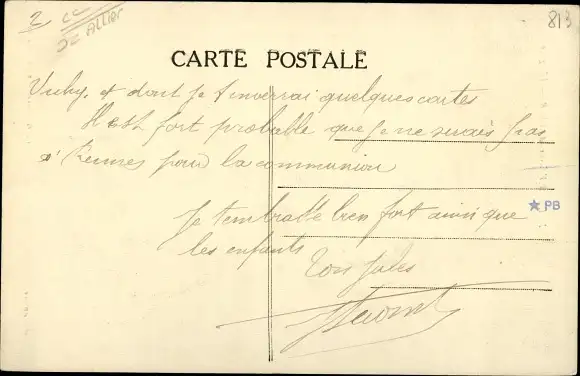 2
813
ALLIER
CARTE POSTALE
Vichy, et dont je t'enverrai quelques cartes
Il est fort probable que je ne serais pas
à Rennes pour la communion
Je t'embrasse bien fort ainsi que
PB
les enfants
Ton Jules